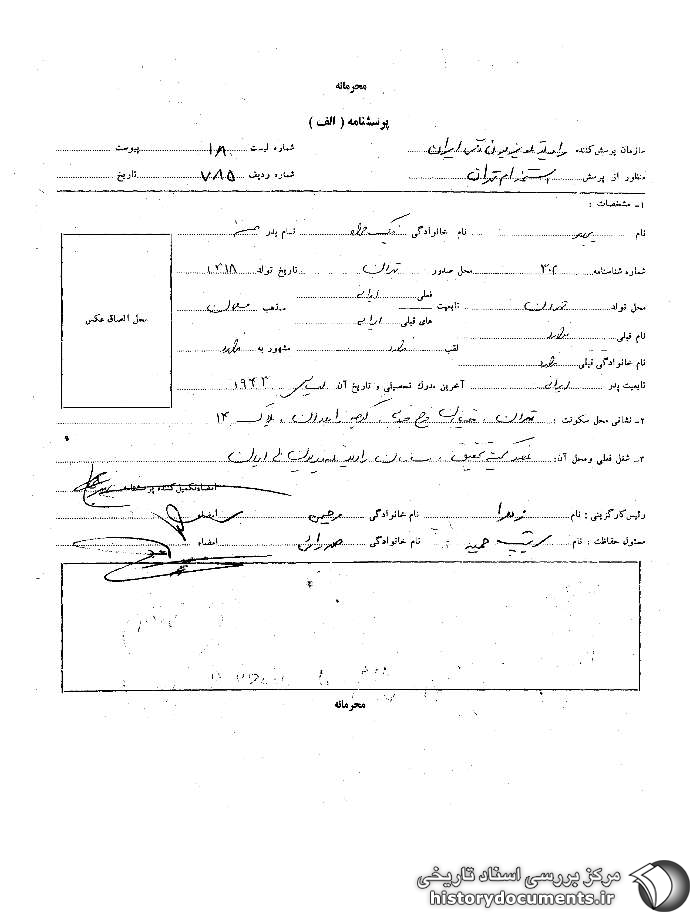 محرمانه
پرسشنامه ( الف )
سازمان پرسش کننده رادیو تلویزیون ملی ایران شماره لیست ۱۸ پیوست
منظور از پرسش استخدام تهران شماره ردیف ۷۸۵ تاریخ
۱ـ مشخصات :
نام نام خانوادگی نیکخواه نام پدر
شماره شناسنامه ۳۰۲ محل صدور تهران تاریخ تولد ۱۳۱۸
محل الصاق عکس
محل تولد تهران تابعیت فعلی ایرانی مذهب مسلمان
های قبلی ایرانی
نام قبلی ندارد لقب ندارد مشهور به ندارد
نام خانوادگی قبلی ندارد
تابعیت پدر ایرانی آخرین مدرک تحصیلی و تاریخ آن لیسانس ۱۹۶۳
۲ـ نشانی محل سکونت : تهران ، پلاک ۱۴
۳ـ شغل فعلی ومحل آن: تحقیق ، سازمان رادیو تلویزیون ملی ایران
امضاء تکمیل کننده پرسشنامه
رئیس کارگزینی : نام زهرا نام خانوادگی امضاء
مسئول حفاظت : نام سرتیپ حمید نام خانوادگی امضاء
محرمانه
مرکز بررسی اسناد تاریخی
historydocuments.ir